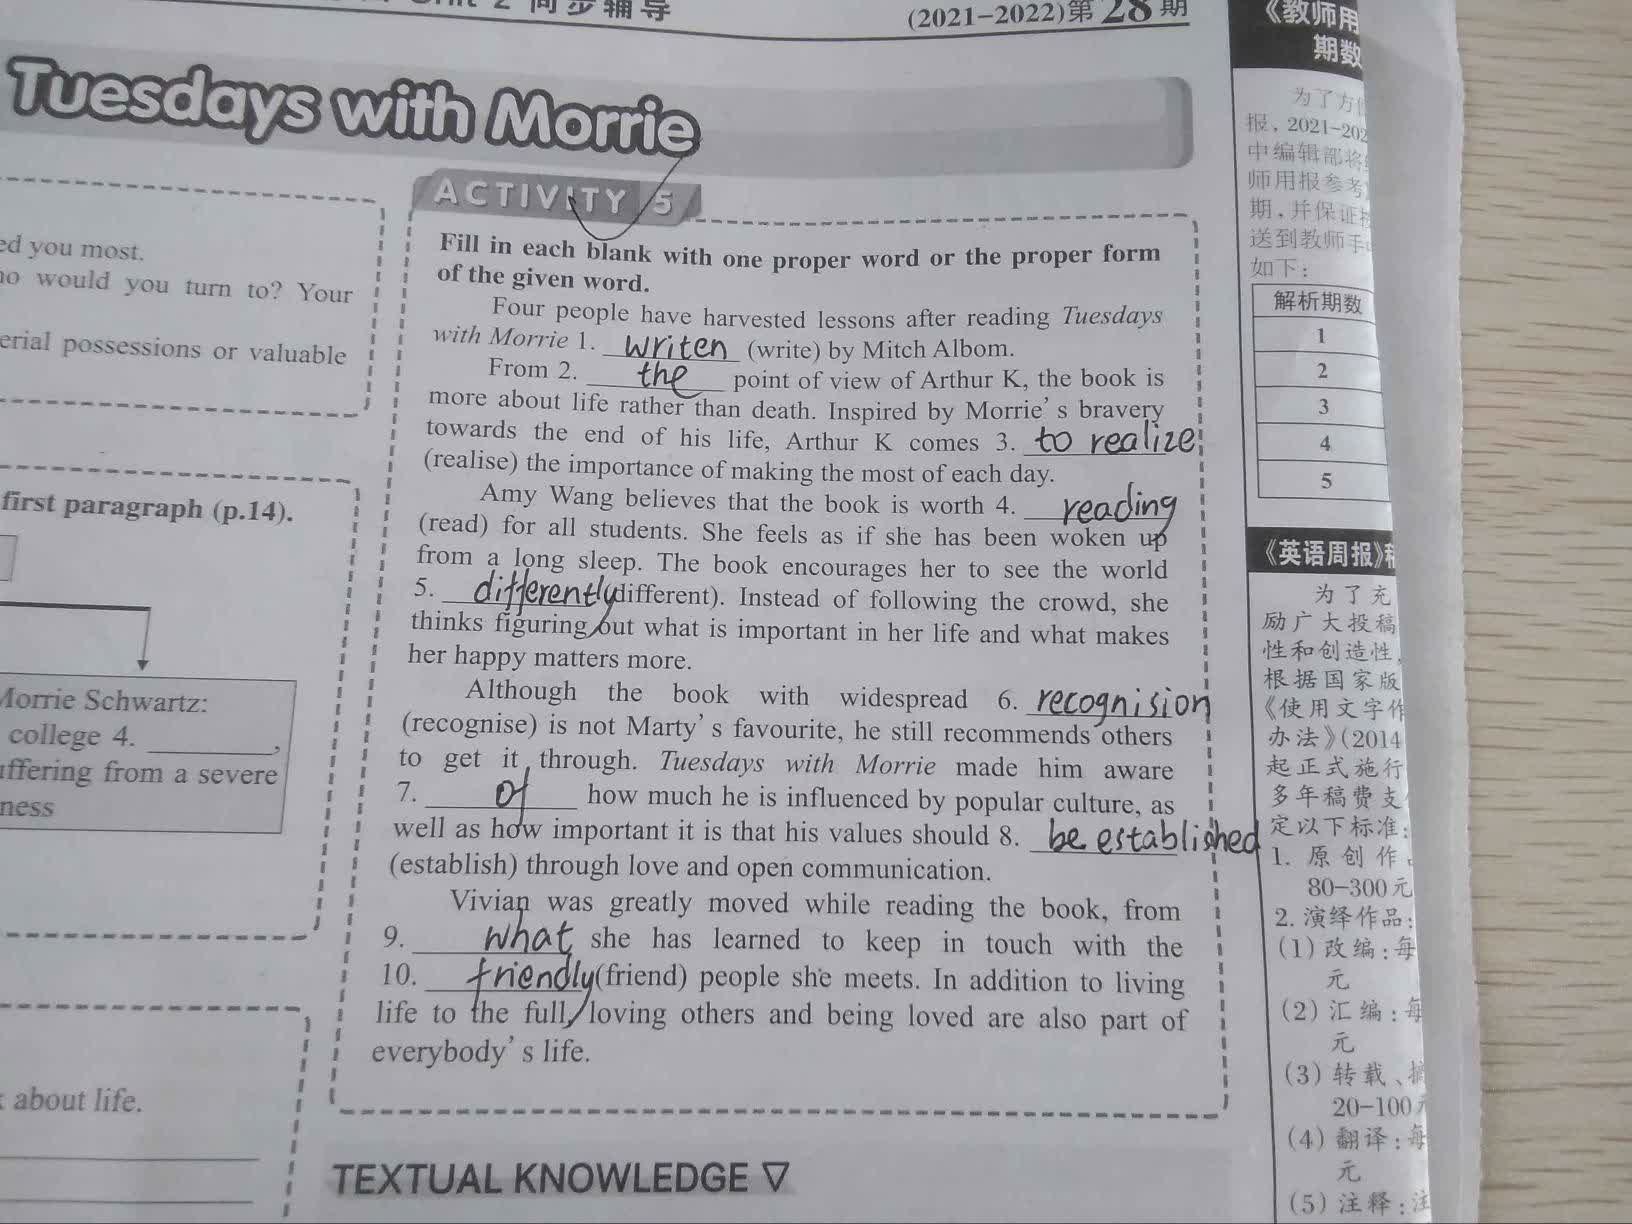 2 同步辅导
(2021-2022)第28期
Tuesdays with Morrie
ed you most.
would you turn to? Your
erial possessions or valuable
first paragraph (p.14).
Morrie Schwartz:
college 4. ________,
uffering from a severe
ness
about life.
ACTIVITY 5
Fill in each blank with one proper word or the proper form
of the given word.
Four people have harvested lessons after reading Tuesdays
with Morrie 1. writen (write) by Mitch Albom.
From 2. the point of view of Arthur K, the book is
more about life rather than death. Inspired by Morrie's bravery
towards the end of his life, Arthur K comes 3. to realize
(realise) the importance of making the most of each day.
Amy Wang believes that the book is worth 4. reading
(read) for all students. She feels as if she has been woken up
from a long sleep. The book encourages her to see the world
5. differently (different). Instead of following the crowd, she
thinks figuring out what is important in her life and what makes
her happy matters more.
Although the book with widespread 6. recognision
(recognise) is not Marty's favourite, he still recommends others
to get it through. Tuesdays with Morrie made him aware
7. of how much he is influenced by popular culture, as
well as how important it is that his values should 8. be established
(establish) through love and open communication.
Vivian was greatly moved while reading the book, from
9. what she has learned to keep in touch with the
10. friendly (friend) people she meets. In addition to living
life to the full, loving others and being loved are also part of
everybody's life.
TEXTUAL KNOWLEDGE ▽
《教师用
期数
为了方
报，2021-202
中编辑部将
师用报参考
期，并保证
送到教师手
如下：
解析期数
1
2
3
4
5
《英语周报》
为了充
励广大投稿
性和创造性，
根据国家版
《使用文字作
办法》(2014
起正式施行
多年稿费支
定以下标准：
1. 原创作
80-300元
2. 演绎作品：
(1)改编：每
元
(2)汇编：每
元
(3)转载、摘
20-100
(4)翻译：每
元
(5)注释：注